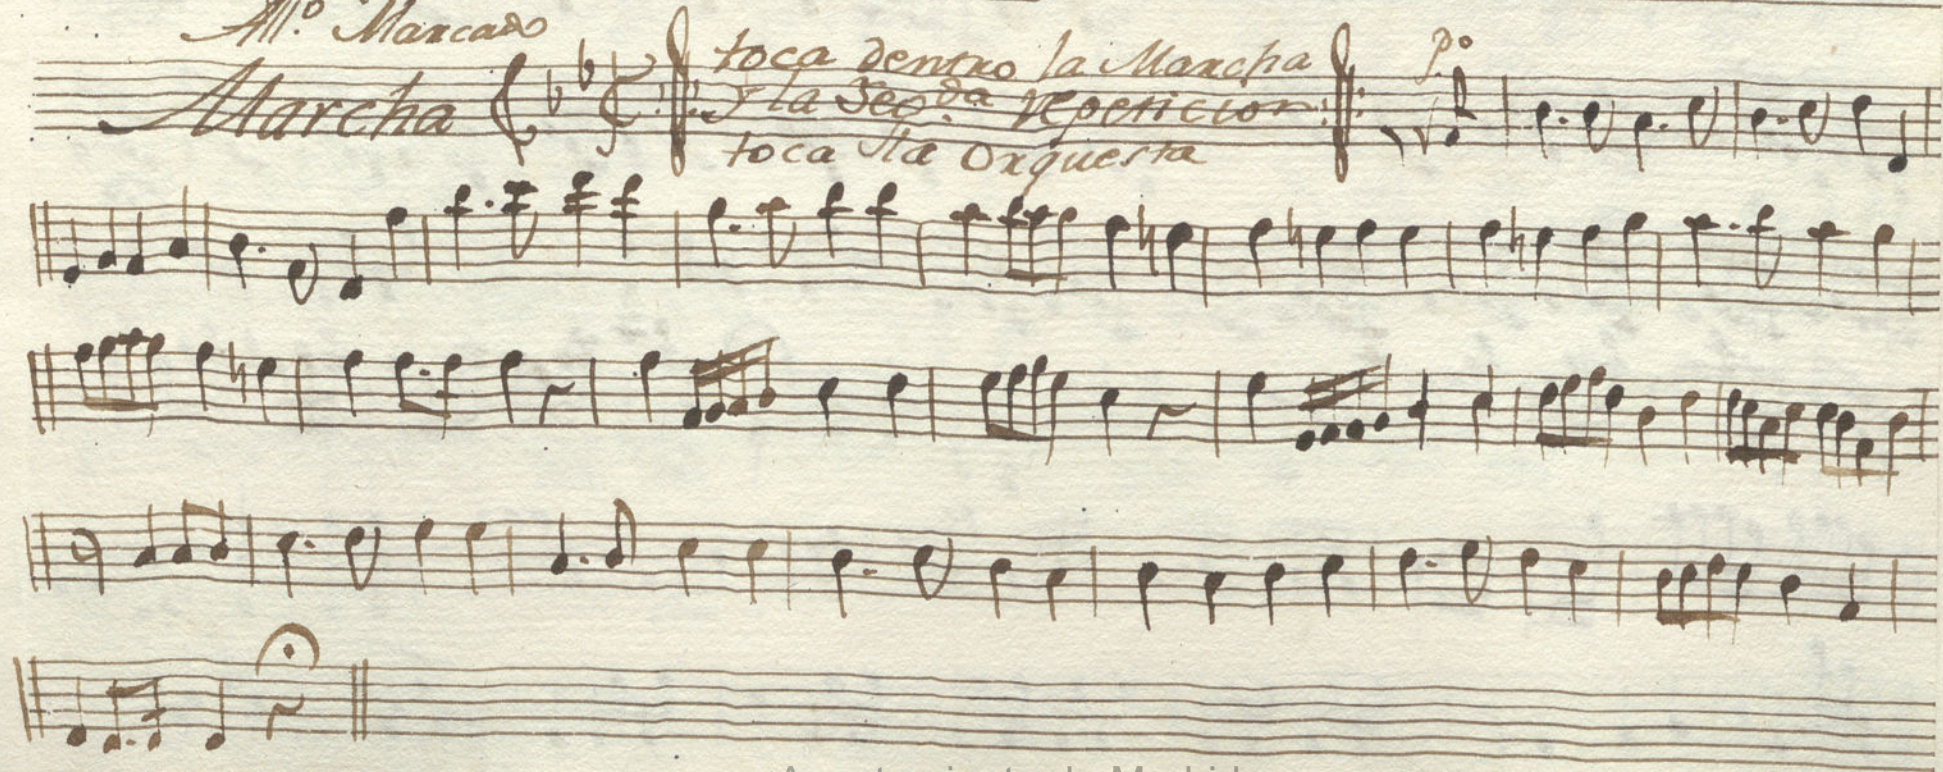 All.º Marcado
Marcha
toca dentro la Marcha
y la Seg.da repeticion
toca la Orquesta
p.º